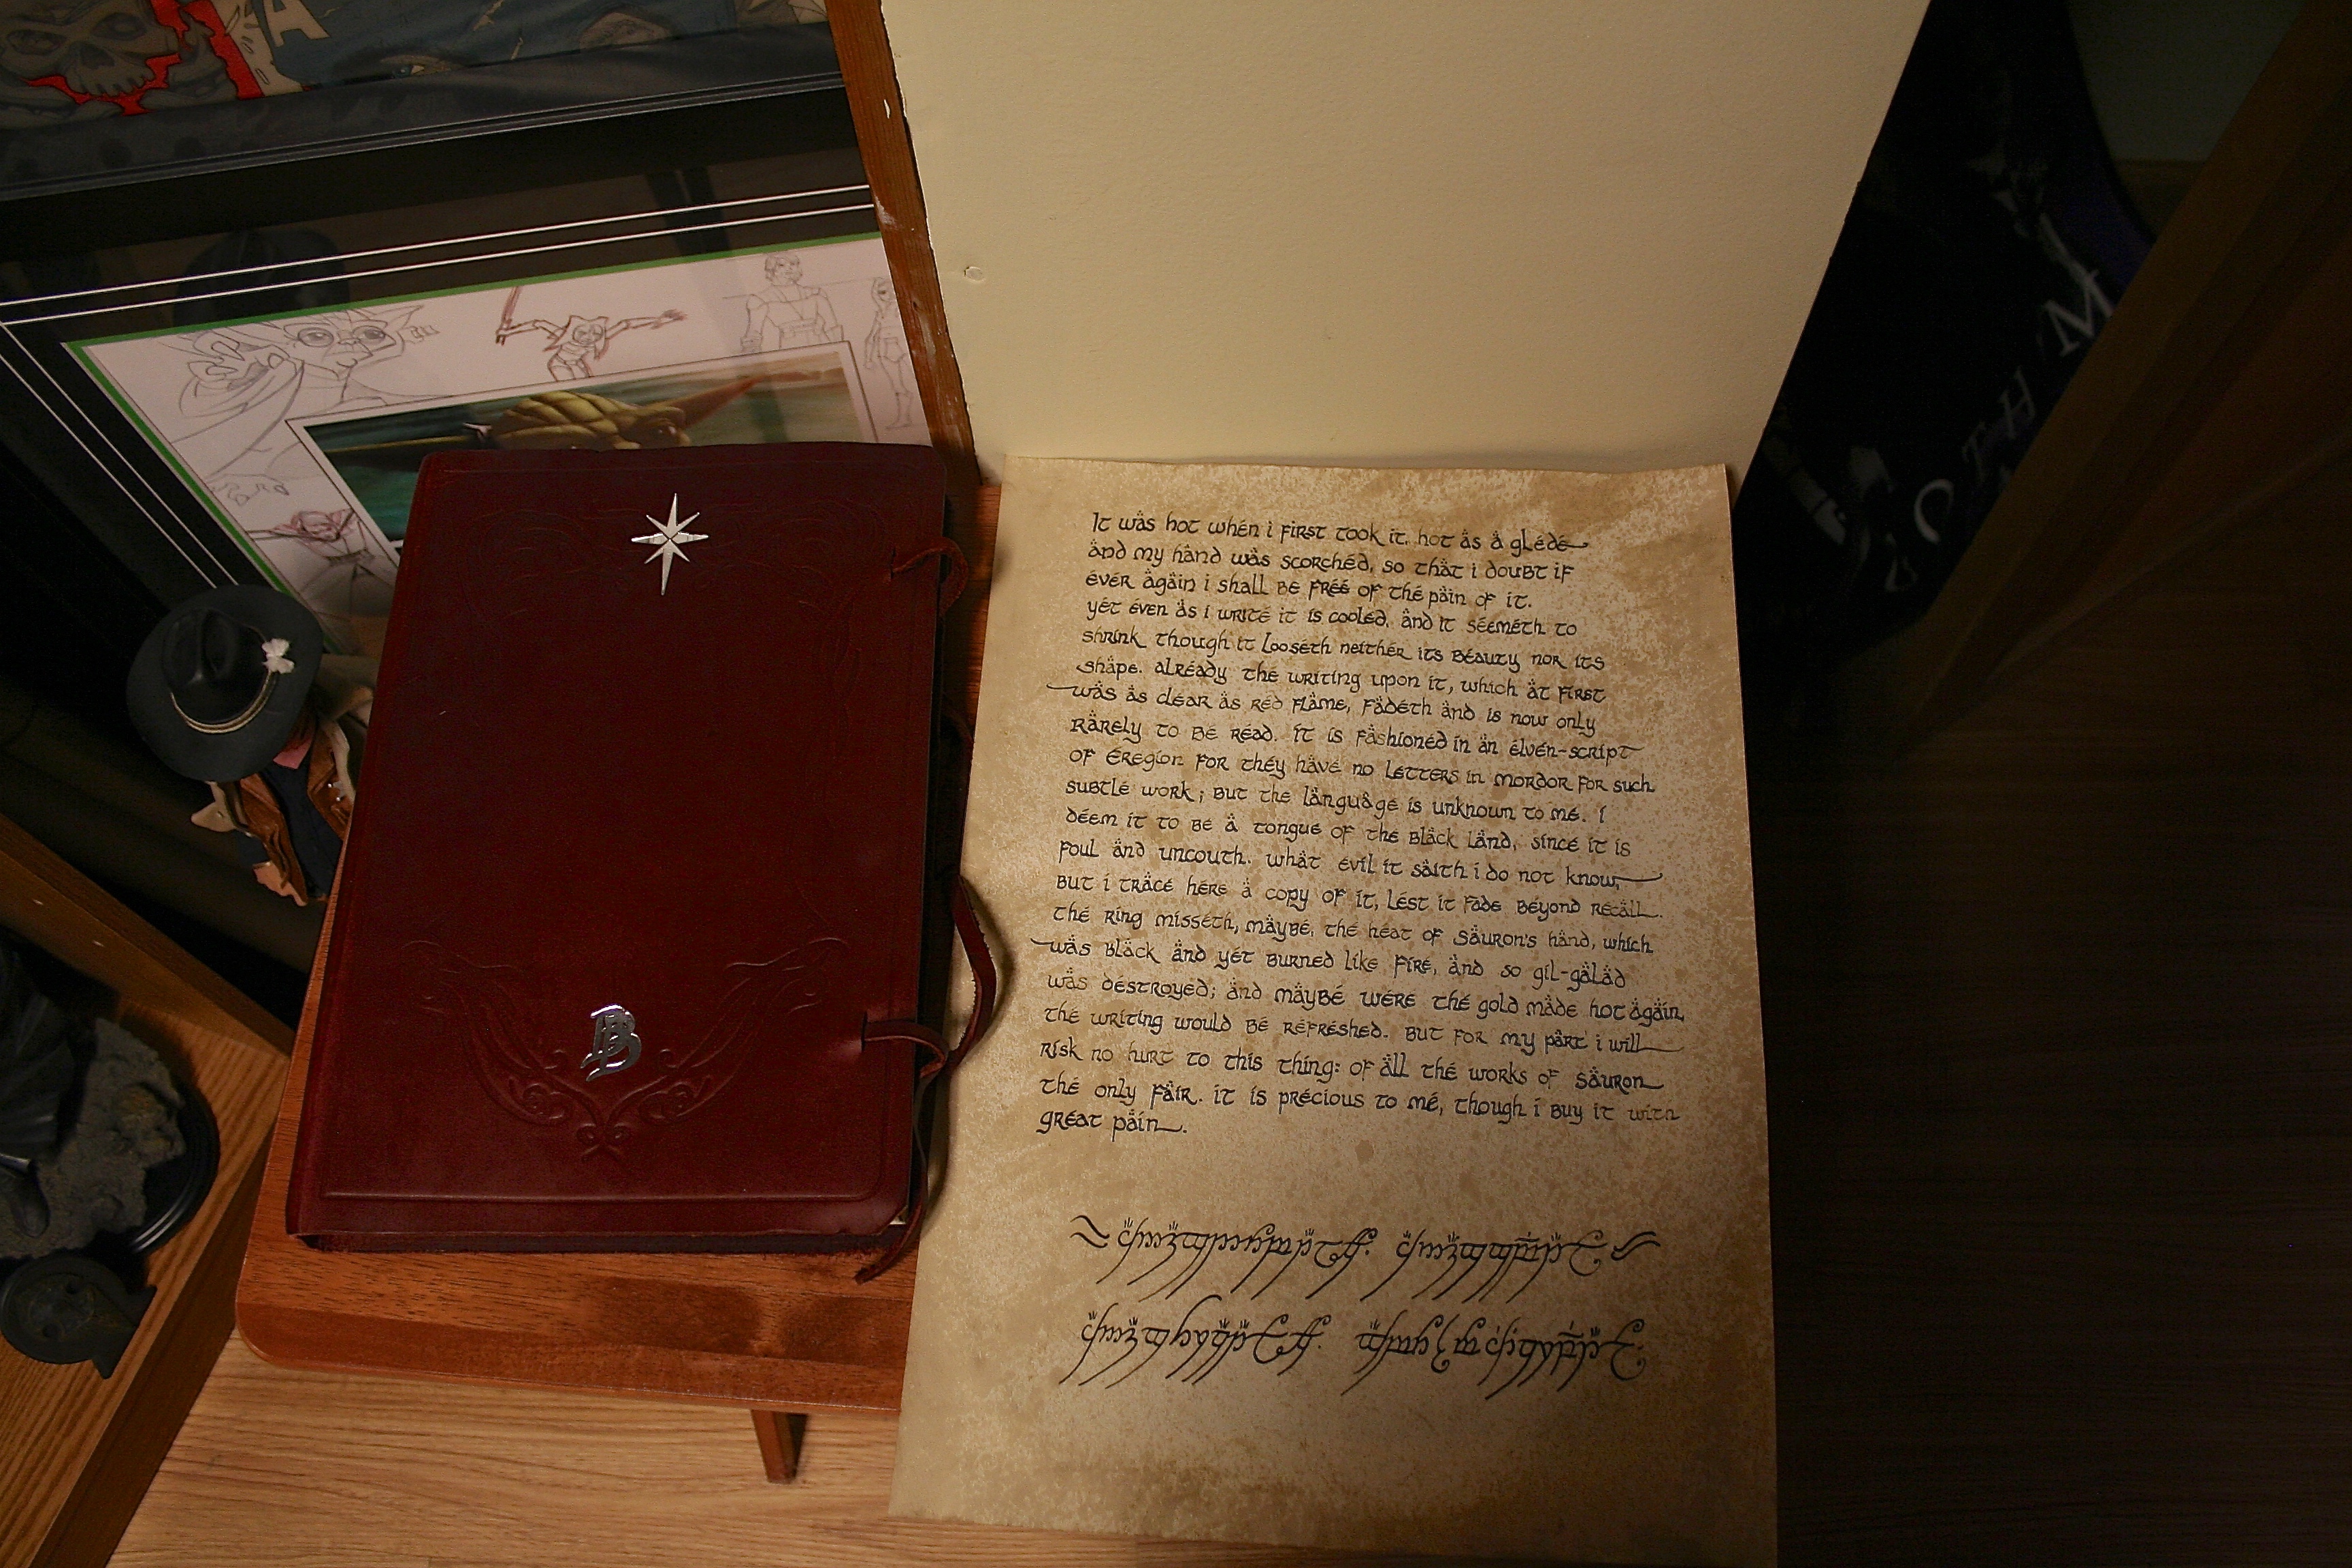 B
It was hot when i first took it, hot as a glede
and my hand was scorched, so that i doubt if
ever again i shall be free of the pain of it.
yet even as i write it is cooled, and it seemeth to
shrink, though it looseth neither its beauty nor its
shape. already the writing upon it, which at first
was as clear as red flame, fadeth and is now only
rarely to be read. it is fashioned in an elven-script
of Eregion for they have no letters in mordor for such
subtle work; but the language is unknown to me. i
deem it to be a tongue of the Black Land, since it is
foul and uncouth. what evil it saith i do not know,
but i trace here a copy of it, lest it fade beyond recall.
the ring misseth, maybe, the heat of Sauron's hand, which
was black and yet burned like fire, and so gil-galad
was destroyed; and maybe were the gold made hot again,
the writing would be refreshed. but for my part i will
risk no hurt to this thing: of all the works of Sauron
the only fair. it is precious to me, though i buy it with
great pain.